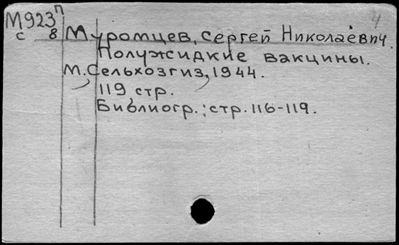 М923п 4
с 8 Муромцев, Сергей Николаевич.
Полужидкие вакцины.
М. Сельхозгиз, 1944.
119 стр.
Библиогр.: стр. 116-119.